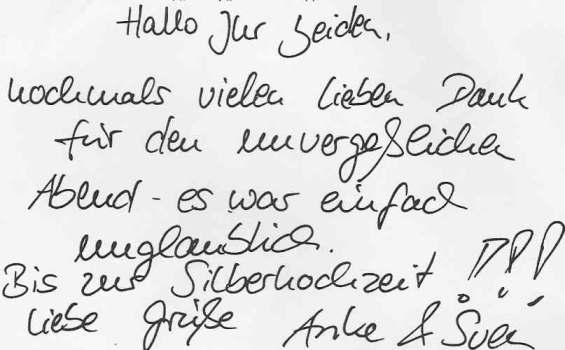 Hallo Ihr beiden,
nochmals vielen lieben Dank
für den unvergeßlichen
Abend - es war einfach
unglaublich.
Bis zur Silberhochzeit !!!
liebe Grüße Anke & Sven